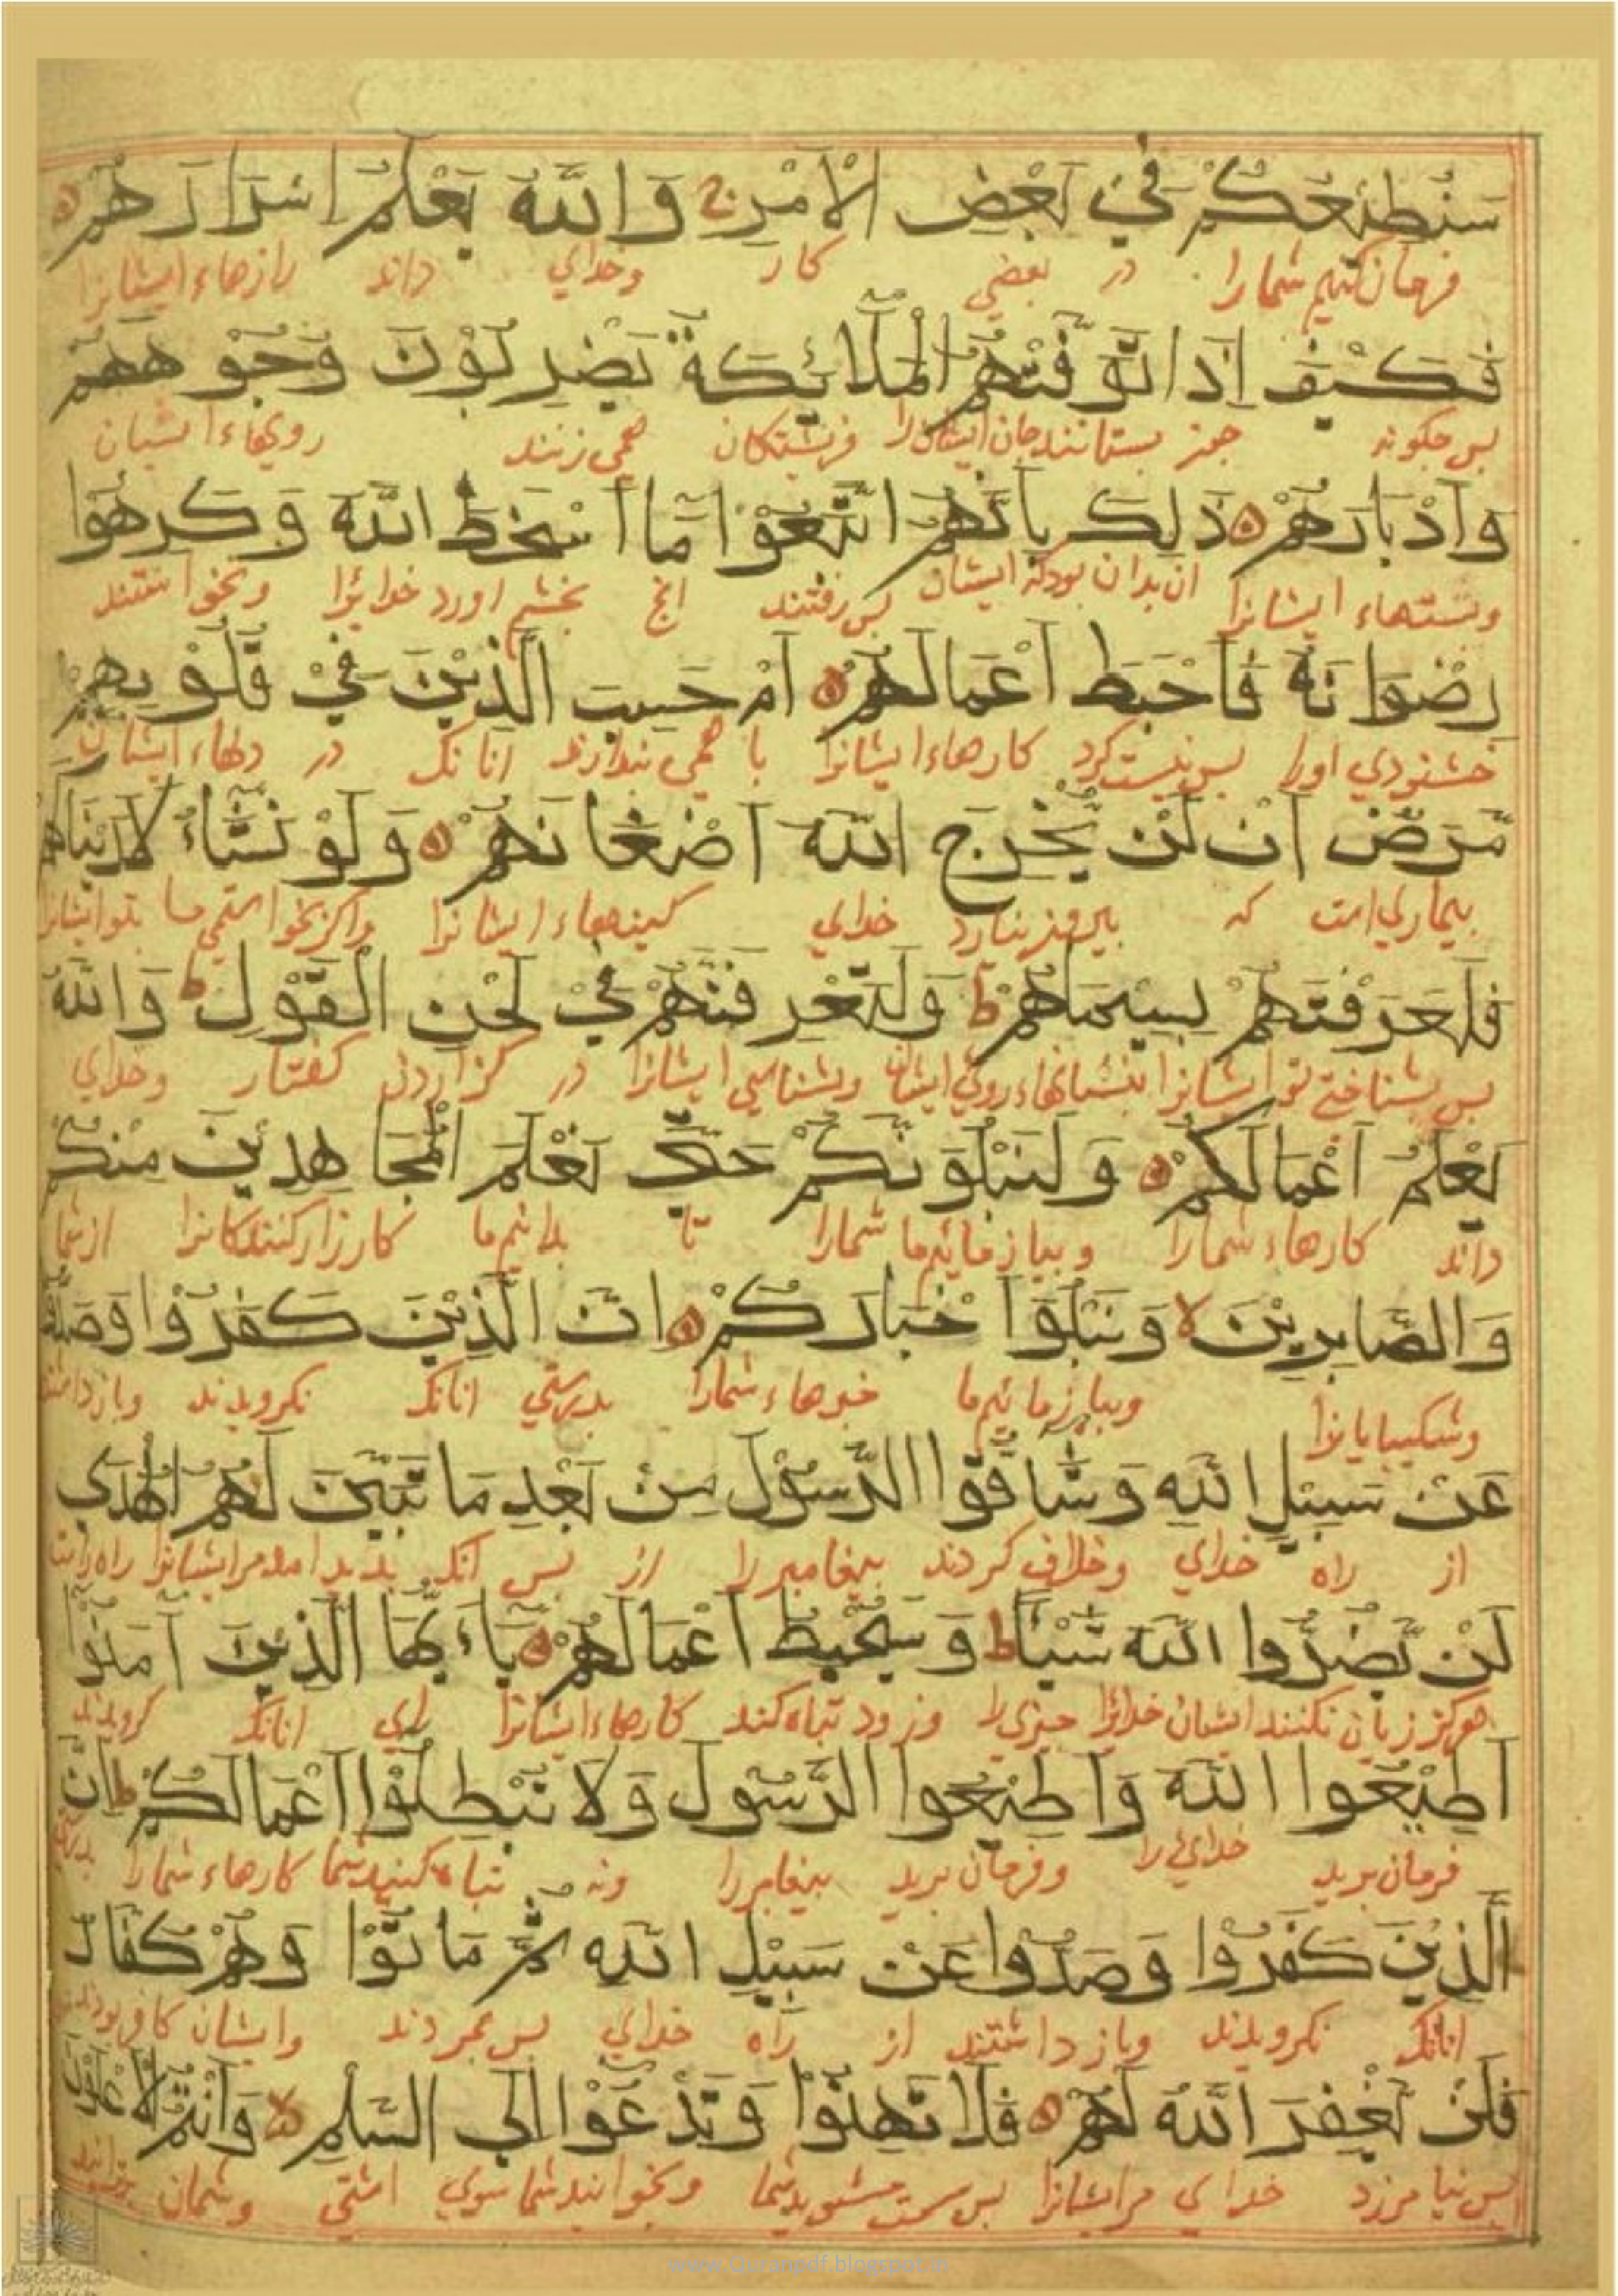 سَنُطِيْعُكُمْ فِيْ بَعْضِ الْاَمْرِ ج وَاللّٰهُ يَعْلَمُ اِسْرَارَهُمْ
فرمان کنیم شمارا در بعضي کار وخداي داند رازهاء ایشانرا
فَكَيْفَ اِذَا تَوَفَّتْهُمُ الْمَلٰٓائِكَةُ يَضْرِبُوْنَ وُجُوْهَهُمْ
بس جکونه جون بستانند جان ایشان را فرشتکان همی زنند رویهاء ایشان
وَاَدْبَارَهُمْ ذٰلِكَ بِاَنَّهُمُ اتَّبَعُوْا مَا اَسْخَطَ اللّٰهَ وَكَرِهُوْا
وبشتهاء ایشانرا ان بدان بودکه ایشان بس رفتند انج بخشم اورد خدایرا ونخواستند
رِضْوَانَهٗ فَاَحْبَطَ اَعْمَالَهُمْ اَمْ حَسِبَ الَّذِيْنَ فِيْ قُلُوْبِهِمْ
خشنودي اورا بس نیست کرد کارهاء ایشانرا با همی بندارند انانک در دلهاء ایشان
مَّرَضٌ اَنْ لَّنْ يُّخْرِجَ اللّٰهُ اَضْغَانَهُمْ وَلَوْ نَشَاءُ لَاَرَيْنَاكَهُمْ
بیماري است که بیرون نیارد خداي کینهاء ایشانرا واکر خواستمی ما بتو ایشانرا
فَلَعَرَفْتَهُمْ بِسِيْمَاهُمْ ط وَلَتَعْرِفَنَّهُمْ فِيْ لَحْنِ الْقَوْلِ ط وَاللّٰهُ
بس بشناختي تو ایشانرا بنشانهاء روي ایشان وبشناسي ایشانرا در کزاردن کفتار وخداي
يَعْلَمُ اَعْمَالَكُمْ وَلَنَبْلُوَنَّكُمْ حَتّٰى نَعْلَمَ الْمُجَاهِدِيْنَ مِنْكُمْ
داند کارهاء شمارا وبیازمائیم ما شمارا تا بدانیم ما کارزار کنندکانرا ازشما
وَالصَّابِرِيْنَ لا وَنَبْلُوَا اَخْبَارَكُمْ اِنَّ الَّذِيْنَ كَفَرُوْا وَصَدُّوْا
وشکیبایانرا وبیازمائیم ما خبرهاء شمارا بدرستي انانک نکرویدند وبازداشتند
عَنْ سَبِيْلِ اللّٰهِ وَشَاقُّوا الرَّسُوْلَ مِنْ بَعْدِ مَا تَبَيَّنَ لَهُمُ الْهُدٰى
از راه خداي وخلاف کردند بیغامبر را از بس انک بدید امد مر ایشانرا راه راست
لَنْ يَّضُرُّوا اللّٰهَ شَيْـًٔا ط وَسَيُحْبِطُ اَعْمَالَهُمْ يٰاَيُّهَا الَّذِيْنَ اٰمَنُوْا
هرکز زیان نکنند ایشان خدایرا جیزي را وزود تباه کند کارهاء ایشانرا اي انانک کرویدند
اَطِيْعُوا اللّٰهَ وَاَطِيْعُوا الرَّسُوْلَ وَلَا تُبْطِلُوْا اَعْمَالَكُمْ اِنَّ
فرمان برید خداي را وفرمان برید بیغامبر را ونه تباه کنید شما کارهاء شمارا بدرستي
الَّذِيْنَ كَفَرُوْا وَصَدُّوْا عَنْ سَبِيْلِ اللّٰهِ ثُمَّ مَاتُوْا وَهُمْ كُفَّارٌ
انانک نکرویدند وبازداشتند از راه خداي بس بمردند وایشان کافر بودند
فَلَنْ يَّغْفِرَ اللّٰهُ لَهُمْ فَلَا تَهِنُوْا وَتَدْعُوْا اِلَى السَّلْمِ وَاَنْتُمُ الْاَعْلَوْنَ
بس نیامرزد خداي مر ایشانرا بس سست مشوید شما ونخوانید شما سوي اشتي وشمان برترانید
www.Quranpdf.blogspot.in